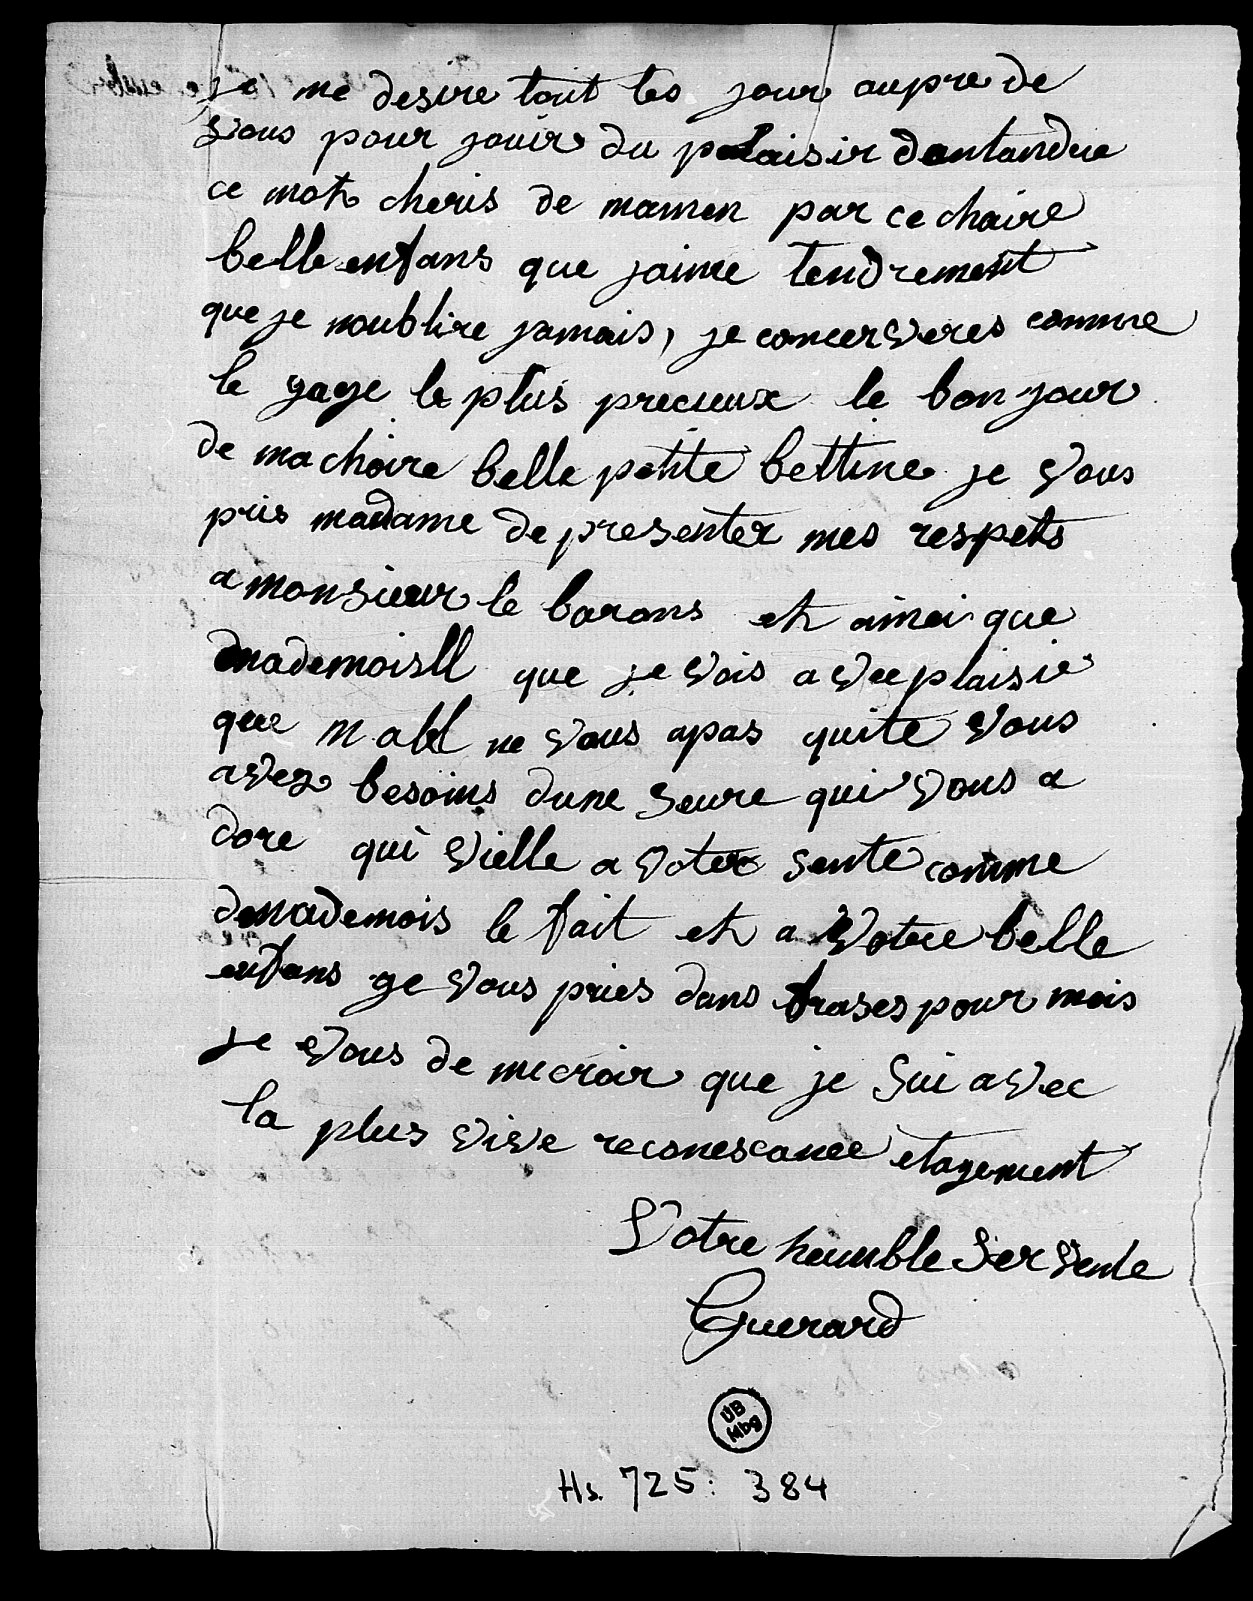 je me desire tout les jour aupre de
vous pour jouir du plaisir dantandre
ce mot cheris de maman par ce chaire
belle enfans que jaime tendrement
que je noublire jamais, je concerveres comme
le gage le plus precieux le bon jour
de ma chaire belle petite bettine je vous
pris madame de presenter mes respets
a monsieur le barons et ainci que
mademoisll que je vois avec plaisir
que mall ne vous apas quite vous
avez besoins dune seure qui vous a
dore qui vielle a votre sente comme
mademois le fait et a votre belle
enfans ge vous pries dans brases pour mois
je vous de me croir que je sui avec
la plus vive reconescance etagement
Votre heumble servente
Guerard
UB
Mbg
Hs. 725: 384